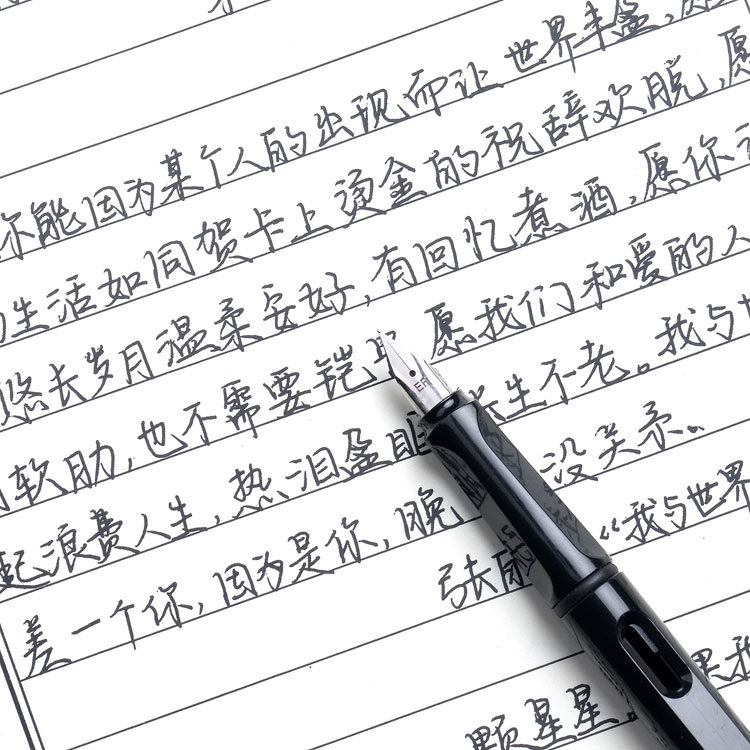 你能因为某个人的出现而让世界丰盈,
生活如同贺卡上烫金的祝辞欢脱,愿
悠长岁月温柔安好,有回忆煮酒,愿你
软助,也不需要铠 愿我们和爱的人
起浪费人生,热泪盈 长生不老。我与
差一个你,因为是你,晚 没关系。
张 《我与世界
颗星星。 我